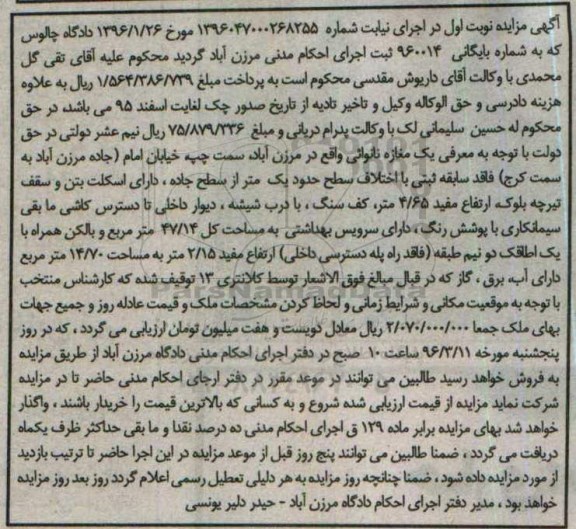 آگهی مزایده نوبت اول در اجرای نیابت شماره ۱۳۹۶۰۴۷۰۰۰۲۶۸۲۵۵ مورخ ۱۳۹۶/۱/۲۶ دادگاه چالوس
که به شماره بایگانی ۹۶۰۰۱۴ ثبت اجرای احکام مدنی مرزن آباد گردید محکوم علیه آقای تقی گل
محمدی با وکالت آقای داریوش مقدسی محکوم است به پرداخت مبلغ ۱/۵۶۴/۳۸۶/۷۳۹ ریال به علاوه
هزینه دادرسی و حق الوکاله وکیل و تاخیر تادیه از تاریخ صدور چک لغایت اسفند ۹۵ می باشد، در حق
محکوم له حسین سلیمانی لک با وکالت پدرام دریانی و مبلغ ۷۵/۸۷۹/۳۳۶ ریال نیم عشر دولتی در حق
دولت با توجه به معرفی یک مغازه نانوائی واقع در مرزن آباد، سمت چپ، خیابان امام (جاده مرزن آباد به
سمت کرج) فاقد سابقه ثبتی با اختلاف سطح حدود یک متر از سطح جاده ، دارای اسکلت بتن و سقف
تیرچه بلوک، ارتفاع مفید ۴/۶۵ متر، کف سنگ ، با درب شیشه ، دیوار داخلی تا دسترس کاشی ما بقی
سیمانکاری با پوشش رنگ ، دارای سرویس بهداشتی به مساحت کل ۴۷/۱۴ متر مربع و بالکن همراه با
یک اطاقک دو نیم طبقه (فاقد راه پله دسترسی داخلی) ارتفاع مفید ۲/۱۵ متر به مساحت ۱۴/۷۰ متر مربع
دارای آب، برق ، گاز که در قبال مبالغ فوق الاشعار توسط کلانتری ۱۳ توقیف شده که کارشناس منتخب
با توجه به موقعیت مکانی و شرایط زمانی و لحاظ کردن مشخصات ملک و قیمت عادله روز و جمیع جهات
بهای ملک جمعا ۲/۰۷۰/۰۰۰/۰۰۰ ریال معادل دویست و هفت میلیون تومان ارزیابی می گردد ، که در روز
پنجشنبه مورخه ۹۶/۳/۱۱ ساعت ۱۰ صبح در دفتر اجرای احکام مدنی دادگاه مرزن آباد از طریق مزایده
به فروش خواهد رسید طالبین می توانند در موعد مقرر در دفتر ارجای احکام مدنی حاضر تا در مزایده
شرکت نماید مزایده از قیمت ارزیابی شده شروع و به کسانی که بالاترین قیمت را خریدار باشند ، واگذار
خواهد شد بهای مزایده برابر ماده ۱۲۹ ق اجرای احکام مدنی ده درصد نقدا و ما بقی حداکثر ظرف یکماه
دریافت می گردد ، ضمنا طالبین می توانند پنج روز قبل از موعد مزایده در این اجرا حاضر تا ترتیب بازدید
از مورد مزایده داده شود ، ضمنا چنانچه روز مزایده به هر دلیلی تعطیل رسمی اعلام گردد روز بعد روز مزایده
خواهد بود ، مدیر دفتر اجرای احکام دادگاه مرزن آباد - حیدر دلیر یونسی